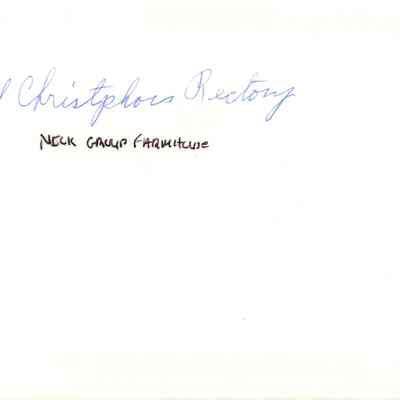 Christphors Rectory
NECK GROUP FARMHOUSE